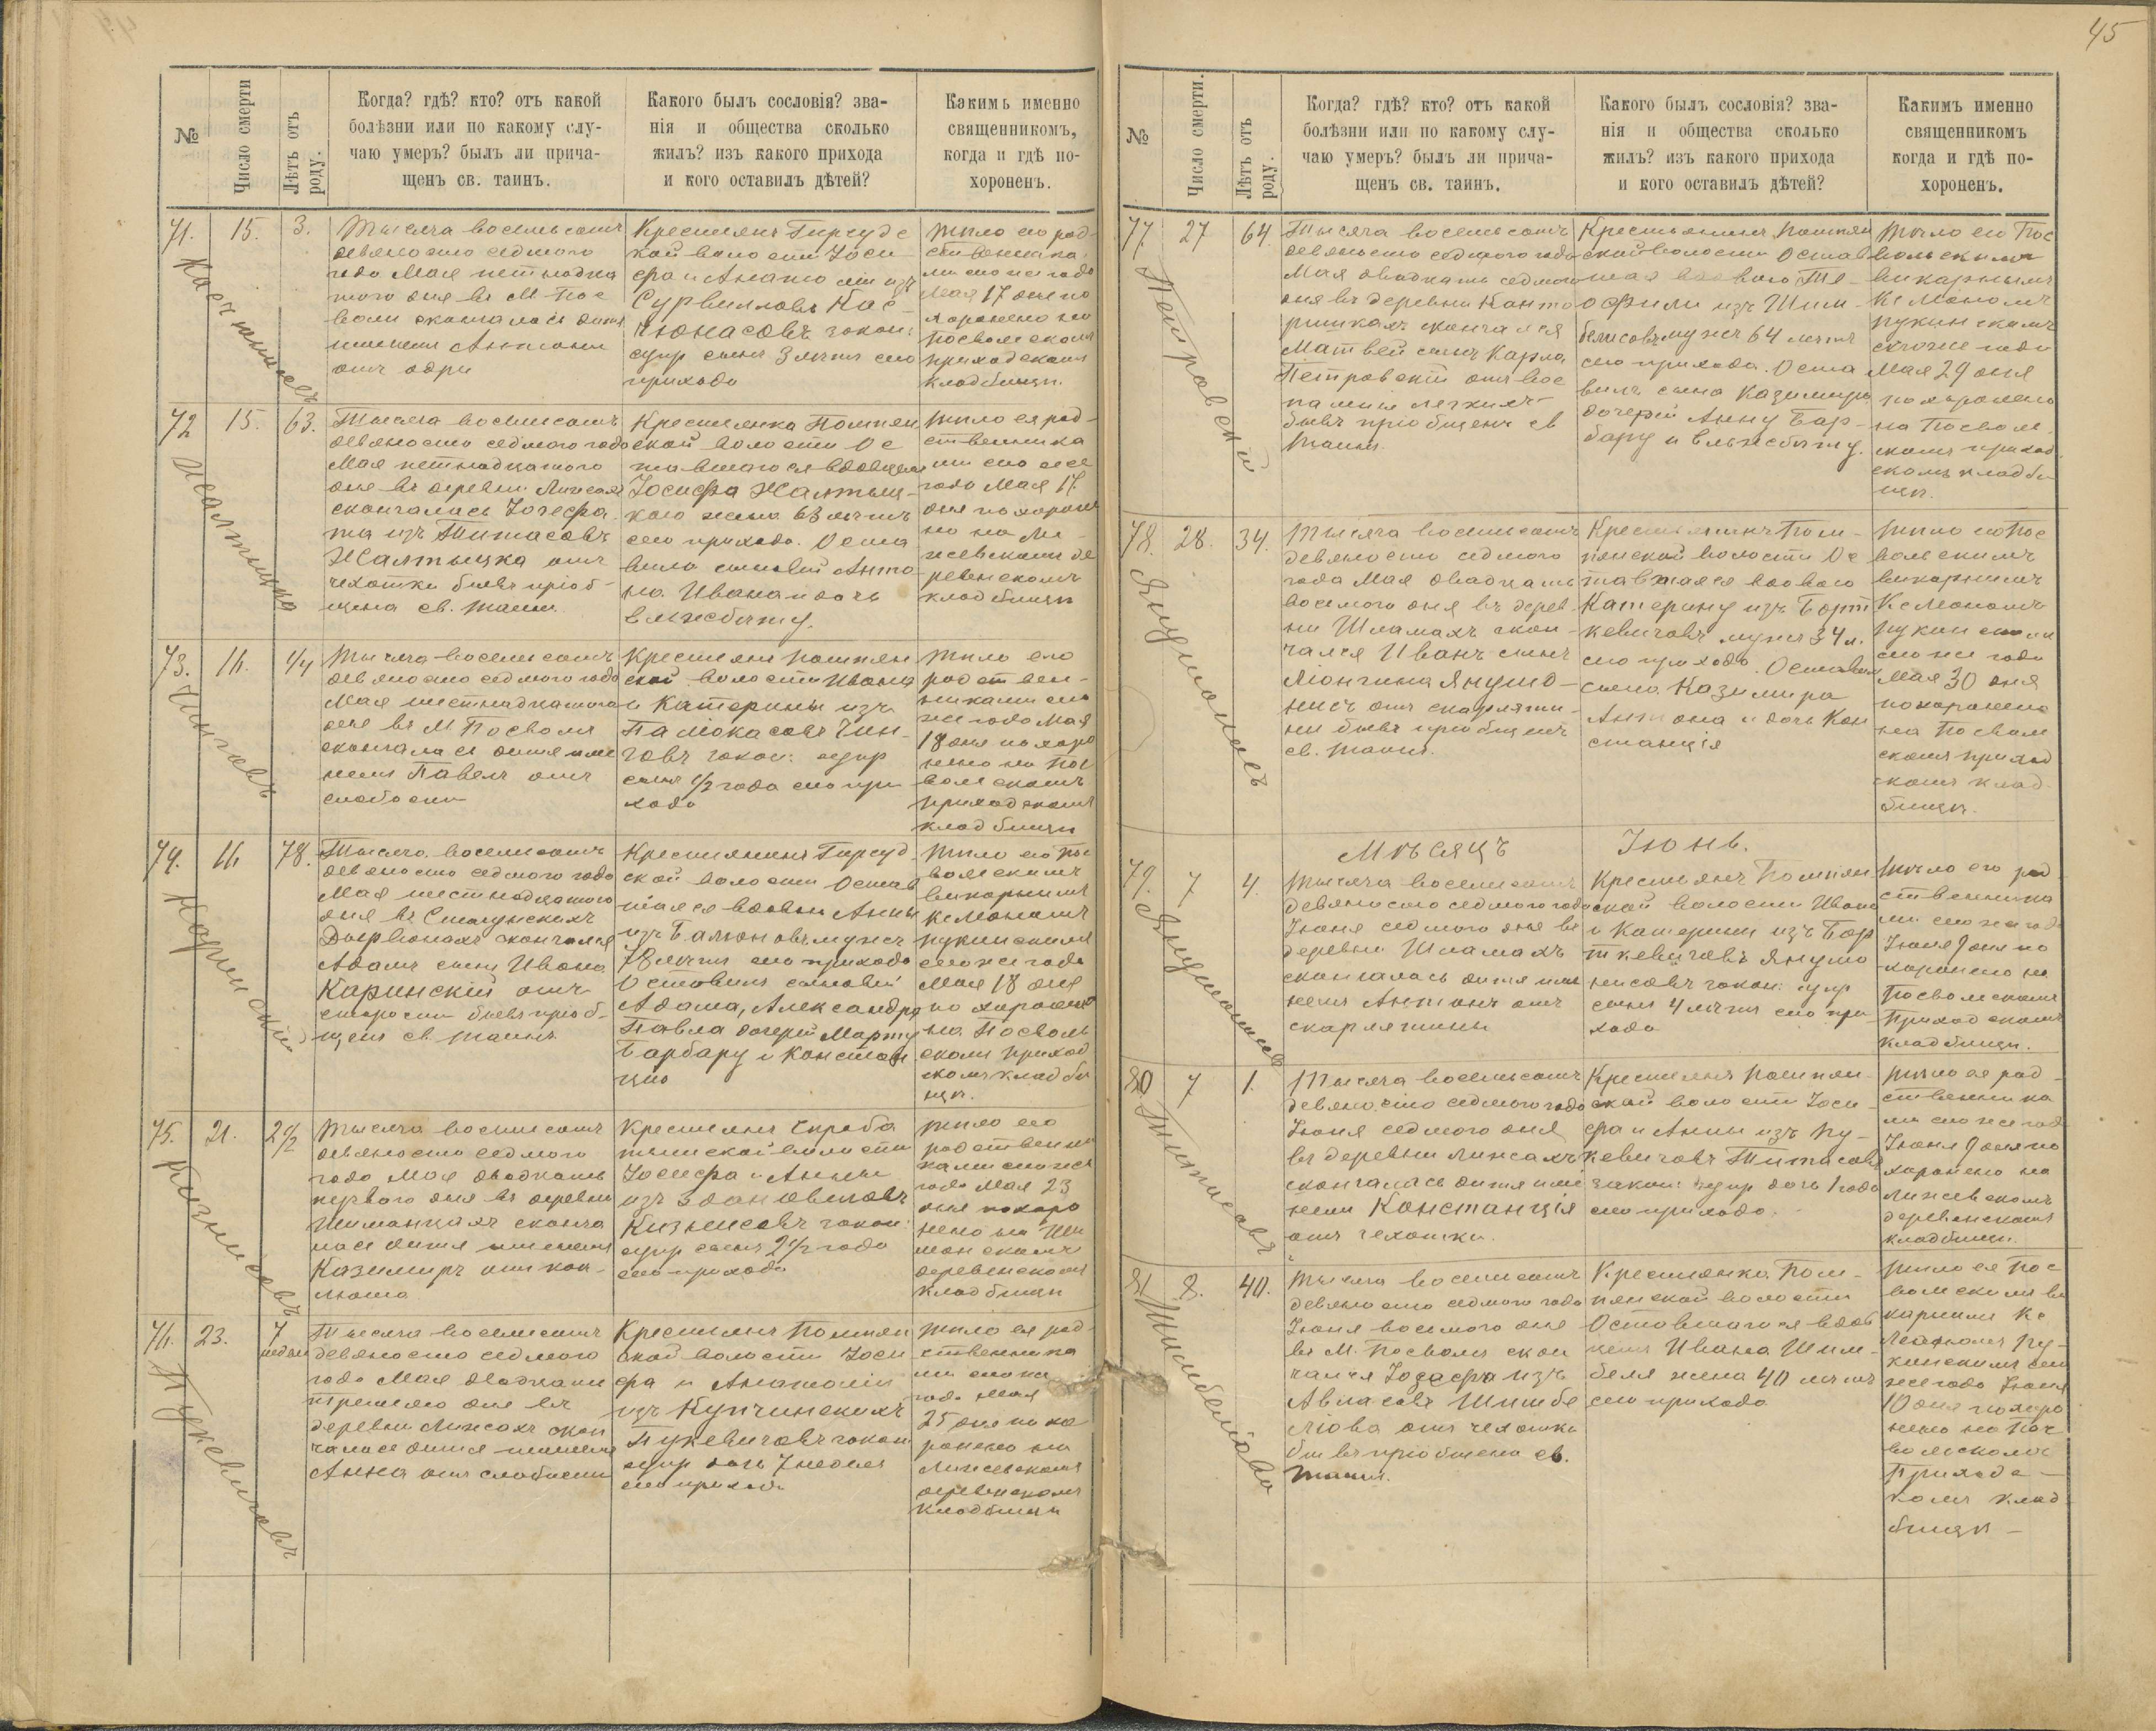 45
№
Число смерти
Лѣтъ отъ роду.
Когда? гдѣ? кто? отъ какой
болѣзни или по какому слу-
чаю умеръ? былъ ли прича-
щенъ св. таинъ.
Какого былъ сословія? зва-
нія и общества сколько
жилъ? изъ какого прихода
и кого оставилъ дѣтей?
Какимъ именно
священникомъ,
когда и гдѣ по-
хороненъ.
71.
15.
3.
Тысяча восемьсотъ
девяносто седмого
года Мая
того дня въ М. Пос
воли скончалось дитя
именемъ Антони
отъ одри
Крестьянъ Гируде
кой волости Іоси
фа и
Сурвилловъ Кас-
чюнасовъ закон:
супр сынъ 3 лѣтъ сего
прихода
тѣло его род-
ственника
ми сего же года
Мая 17 дня по
хоронено на
Посвольскомъ
приходскомъ
кладбищѣ.
72
15.
63.
Тысяча восемьсотъ
девяносто седмого года
Мая петнадцатого
дня въ деревни
скончалась Іозефа
та изъ Титасовъ
Жалтыцка отъ
чехотки бывъ пріоб-
щена св. таинъ.
Крестьянка Помпян
ской волости Ос
тавшагося вдовцемъ
Іосифа Жалтыц-
каго жена 63 лѣтъ
сего прихода. Оста
вила сыновей Анто
на Ивана и дочь
Ельжебѣту.
тѣло ея род-
ственника
ми сего же
года Мая 17
дня похороне
но на Ли-
жевскомъ де
ревенскомъ
кладбищѣ
73.
16.
1/4
Чинговъ
Тысяча восемьсотъ
девяносто седмого года
Мая шестнадцатого
дня въ М Посволя
скончалось дитя име
немъ Павелъ отъ
слабости
Крестьянъ Помпян
ской волости Ивана
и Катерины изъ
Палюкасовъ Чин-
говъ закон: супр
сынъ 1/2 года сего при
хода
тѣло его
родствен-
никами сего
же года Мая
18 дня похоро
нено на Пос
вольскомъ
приходскомъ
кладбищѣ
74.
16
78.
Каринскій
Тысяча восемьсотъ
девяносто седмого года
Мая шестнадцатого
дня въ
скончался
Адамъ сынъ Ивана
Каринскій отъ
старости бывъ пріоб-
щенъ св. таинъ
Крестьянинъ Гируд
ской волости Остав
шаяся вдовы Анны
изъ мужъ
78 лѣтъ сего прихода
Оставилъ сыновей
Адама, Александра
Павла дочерей Марту
Барбару и Констан
цію
тѣло его Пос
вольскимъ
викарнымъ
Кс
сего же года
Мая 18 дня
по хоронено
на Посволь
скомъ приход
скомъ кладби
щѣ.
75.
21.
2 1/2
Кизмисовъ
Тысяча восемьсотъ
девяносто седмого
года Мая двадцать
первого дня въ деревни
Шиманцахъ сконча
лось дитя именемъ
Казимиръ отъ кон-
люша
Крестьянъ Скраба
тынской волости
Іосифа и Анны
изъ Здановичовъ
Кизмисовъ закон:
супр сынъ 2 1/2 года
сего прихода
тѣло его
родственни
ками сего же
года Мая 23
дня похоро
нено на Ши
манскомъ
деревенскомъ
кладбищѣ
76.
23.
7
недѣль
Пукевичовъ
Тысяча восемьсотъ
девяносто седмого
года Мая двадцать
третьяго дня въ
деревни Лижахъ скон
чалось дитя именемъ
Анна отъ слабости
Крестьянъ Помпян
ской волости Іоси
фа и Анатоліи
изъ Купчинскихъ
Пукевичовъ закон
супр дочь 7 недѣль
сего прихода
тѣло ея род-
ственника
ми сего же
года Мая
25 дня похо
ронено на
Лижевскомъ
деревенскомъ
кладбищѣ
№
Число смерти.
Лѣтъ отъ роду.
Когда? гдѣ? кто? отъ какой
болѣзни или по какому слу-
чаю умеръ? былъ ли прича-
щенъ св. таинъ.
Какого былъ сословія? зва-
нія и общества сколько
жилъ? изъ какого прихода
и кого оставилъ дѣтей?
Какимъ именно
священникомъ
когда и гдѣ по-
хороненъ.
77.
27
64.
Петровскій
Тысяча восемьсотъ
девяносто седмого года
Мая двадцать седмого
дня въ деревни Канто
ришкахъ скончался
Матвей сынъ Карла
Петровскій отъ вос
паленія легкихъ
бывъ пріобщенъ св
таинъ
Крестьянинъ Помпян
ской волости Остав
шая вдового Те-
офили изъ Шим-
белисовъ мужъ 64 лѣтъ
сего прихода. Оста
вилъ сына Казимира
дочерей Анну Бар-
бару и Ельжебѣту.
тѣло его Пос
вольскимъ
викарнымъ
Кс
сего же года
Мая 29 дня
похоронено
на Посволь
скомъ приход
скомъ кладби
щѣ.
78.
28.
34.
Янушонисъ
Тысяча восемьсотъ
девяносто седмого
года Мая двадцать
восьмого дня въ дерев
ни Шламахъ скон
чался Иванъ сынъ
Лонгина Янушо-
нисъ отъ скарляти-
ни бывъ пріобщенъ
св. таинъ.
Крестьянинъ Пом-
пянской волости Ос
тавшаяся вдового
Катерину изъ Борт
кевичовъ мужъ 34 л.
сего прихода. Оставилъ
сына Казимира
Антона и дочь Кон
станція
тѣло его Пос
вольскимъ
викарнымъ
Кс
сего же года
Мая 30 дня
похоронено
на Посволь
скомъ приход
скомъ клад
бищѣ.
Мѣсяцъ Іюнь.
79.
7
4.
Тысяча восемьсотъ
девяносто седмого года
Іюня седмого дня въ
деревни Шламахъ
скончалось дитя име
немъ Антонъ отъ
скарлятины
Крестьянъ Помпян
ской волости Ивана
и Катерини изъ Бор
ткевичовъ Янушо
нисовъ закон: супр
сынъ 4 лѣтъ сего при
хода
тѣло его род
ственника
ми сего же года
Іюня 9 дня по
хоронено на
Посвольскомъ
Приходскомъ
кладбищѣ.
80
7
1.
Титисовъ
Тысяча восемьсотъ
девяносто седмого года
Іюня седмого дня
въ деревни Лижахъ
скончалась дитя име
немъ Констанція
отъ чехотки.
Крестьянъ Помпян-
ской волости Іоси-
фа и Анны изъ Пу-
кевичовъ Титасовъ
закон: супр дочь 1 года
сего прихода.
тѣло ея род-
ственника
ми сего же года
Іюня 9 дня по
хоронено на
Лижевскомъ
деревенскомъ
кладбищѣ.
81
8.
40.
Тысяча восемьсотъ
девяносто седмого года
Іюня восьмого дня
въ М. Посволя скон
чался изъ
Авласовъ Шимбе
лова отъ чехотки
бывъ пріобщена св.
таинъ.
Крестьянка Пом-
пянской волости
Оставшагося вдов
цемъ Ивана Шим-
беля жена 40 лѣтъ
сего прихода
тѣло ея Пос
вольскимъ ви
карнымъ Кс
сего
же года Іюня
10 дня похоро
нено на Пос
вольскомъ
Приходс-
комъ клад
бищѣ –